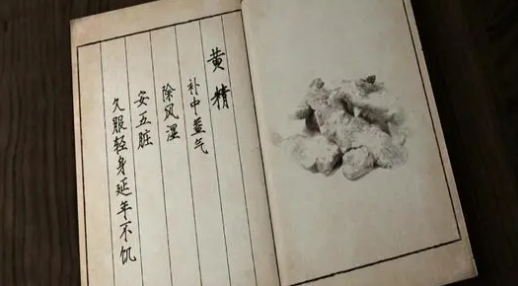 黄精
补中益气
除风湿
安五脏
久服轻身延年不饥